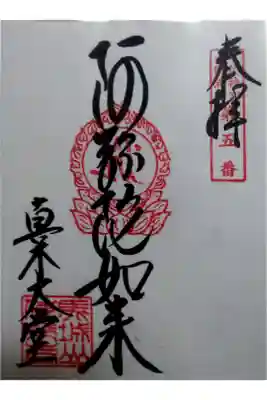 奉拝
五番
阿弥陀如来
真木大堂